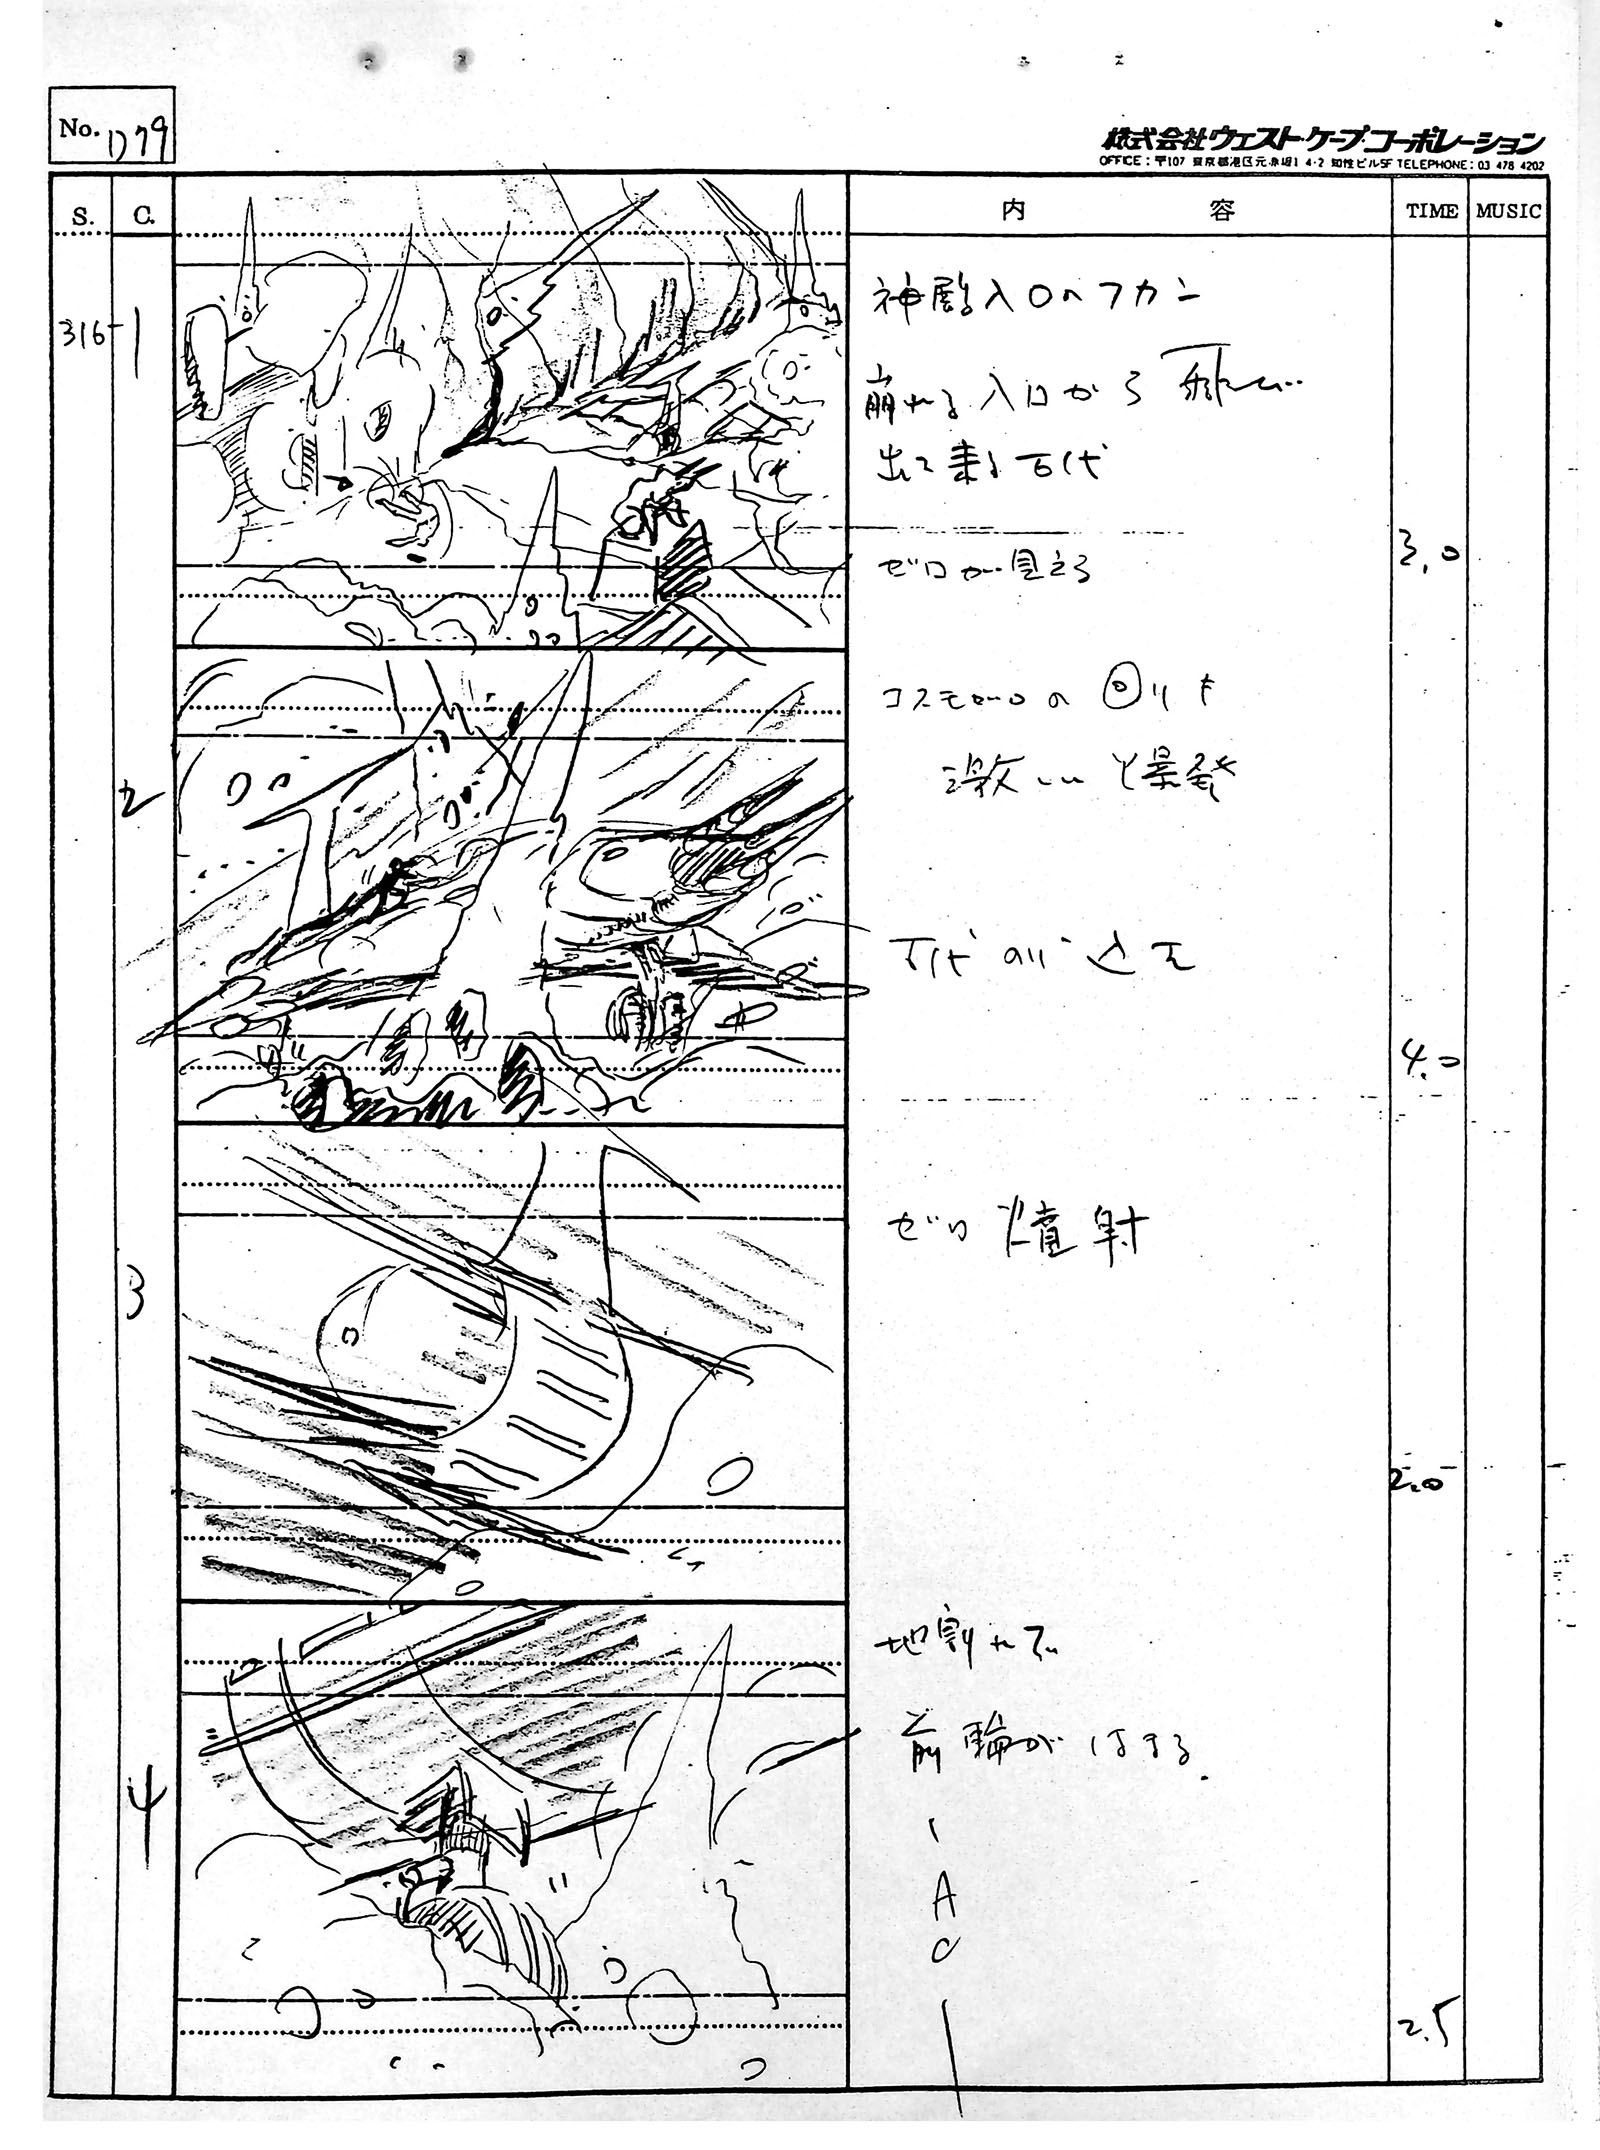 No. D79
株式会社ウェスト・ケープ・コーポレーション
OFFICE：〒107 東京都港区元赤坂1 4-2 知性ビル5F TELEPHONE：03 478 4202
S. C. 内 容 TIME MUSIC
316 1
神殿入口へフカン
崩れる入口から飛び
出て来る古代
ゼロが見える
3.0
2
コスモゼロの回りも
激しく爆発
古代
4.0
3
ゼロ噴射
2.0
4
地割れて
前輪がはまる.
A
C
2.5